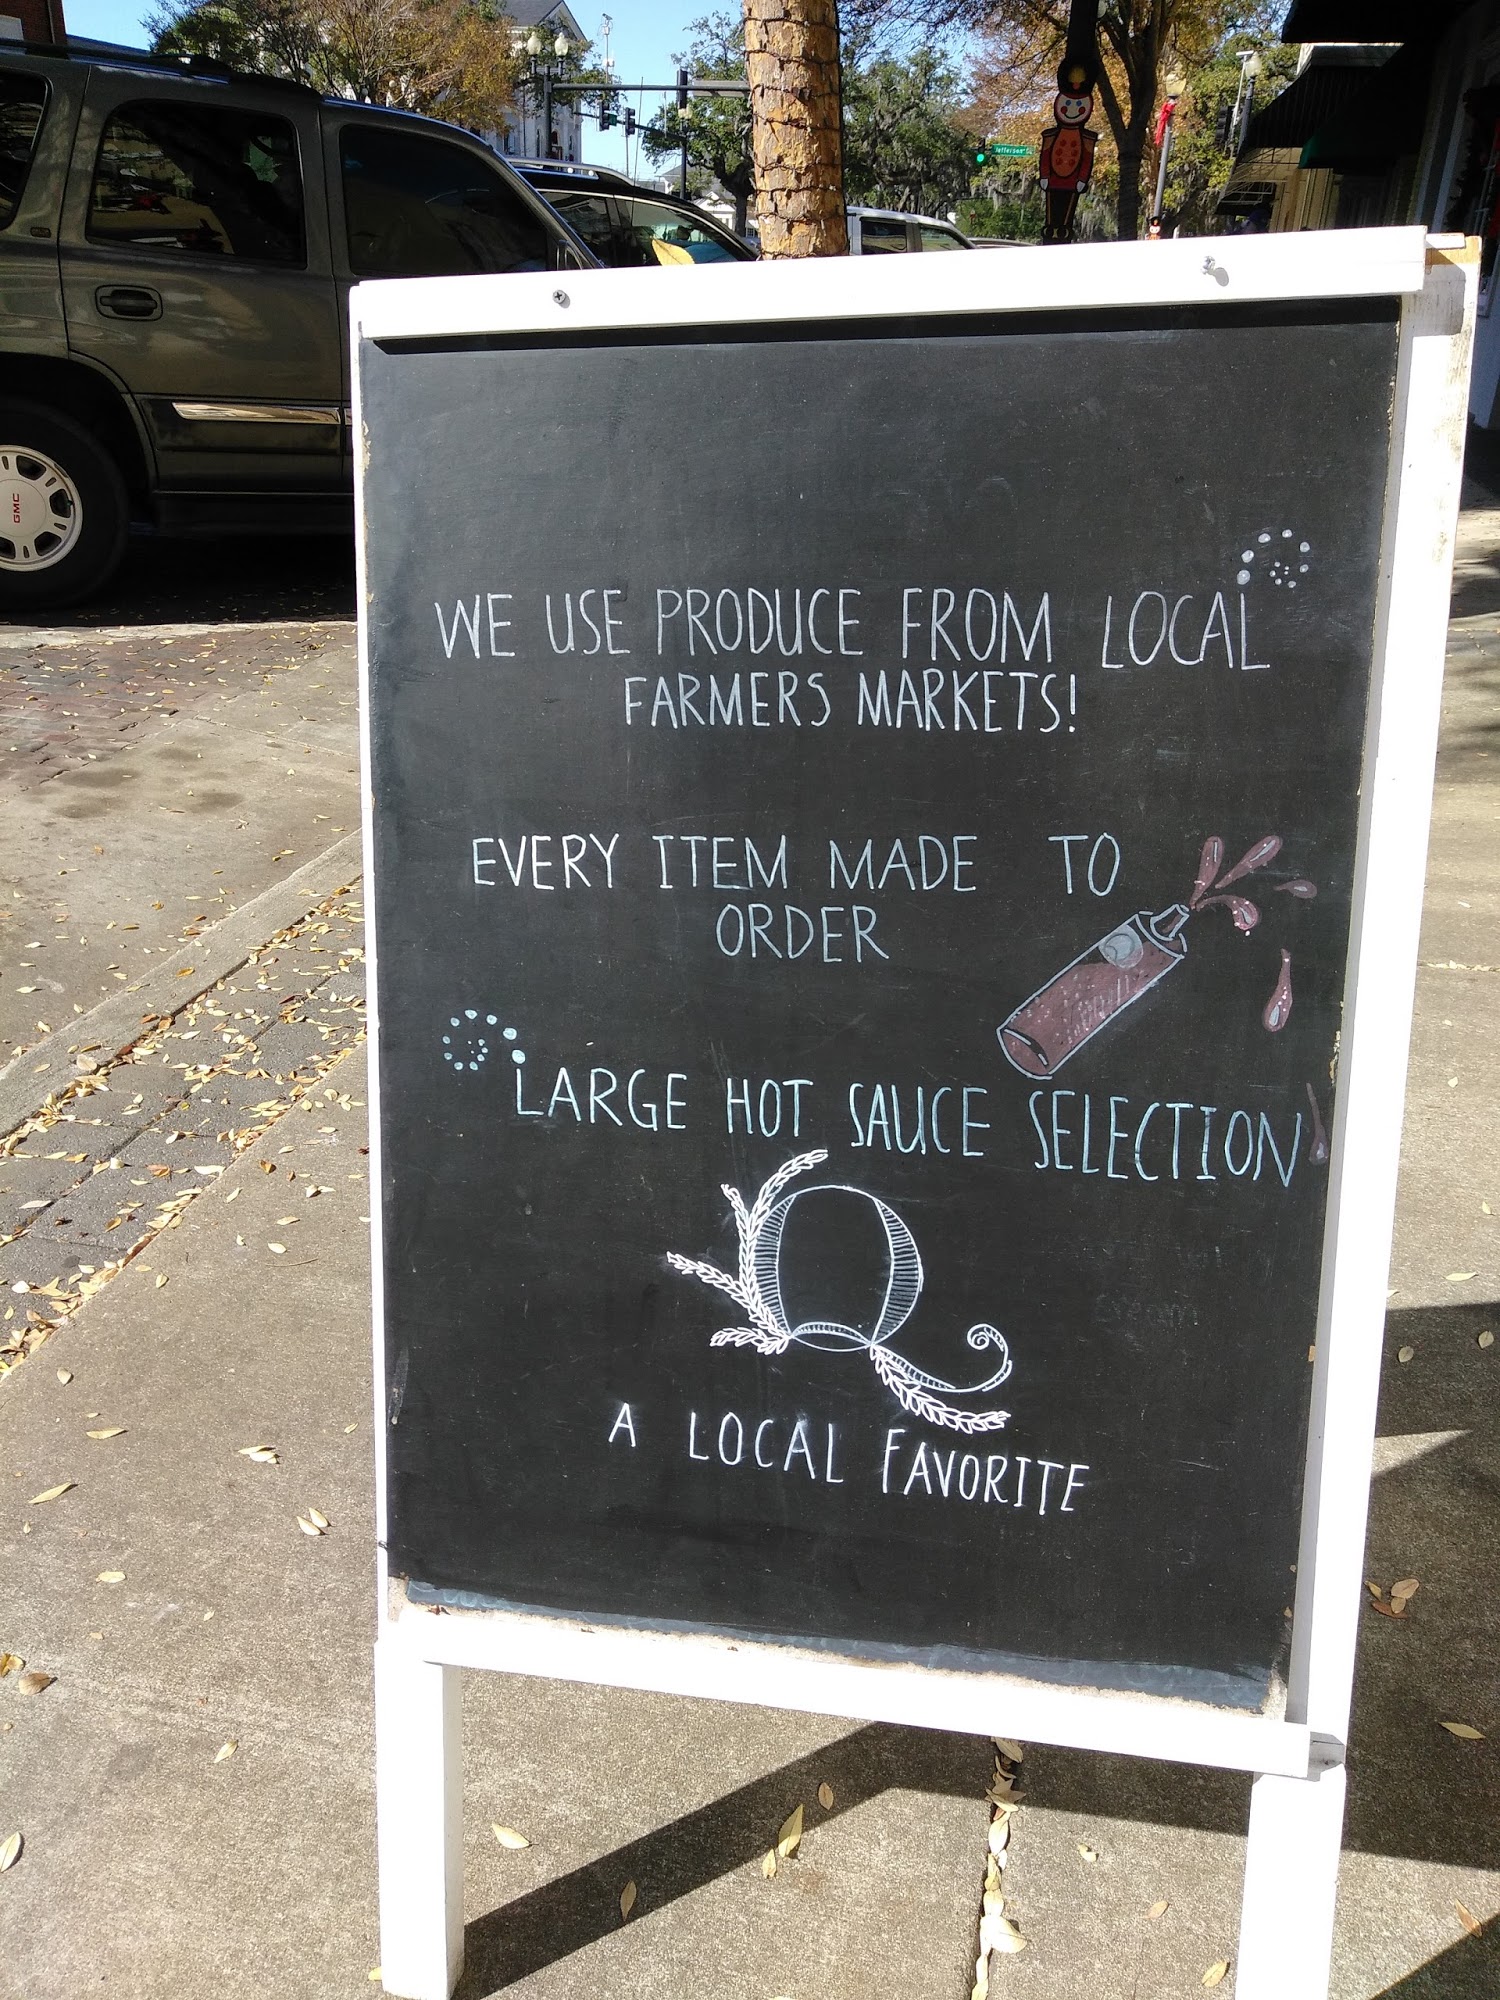 Jefferson
GMC
WE USE PRODUCE FROM LOCAL
FARMERS MARKETS!
EVERY ITEM MADE TO
ORDER
LARGE HOT SAUCE SELECTION
Q
A LOCAL FAVORITE